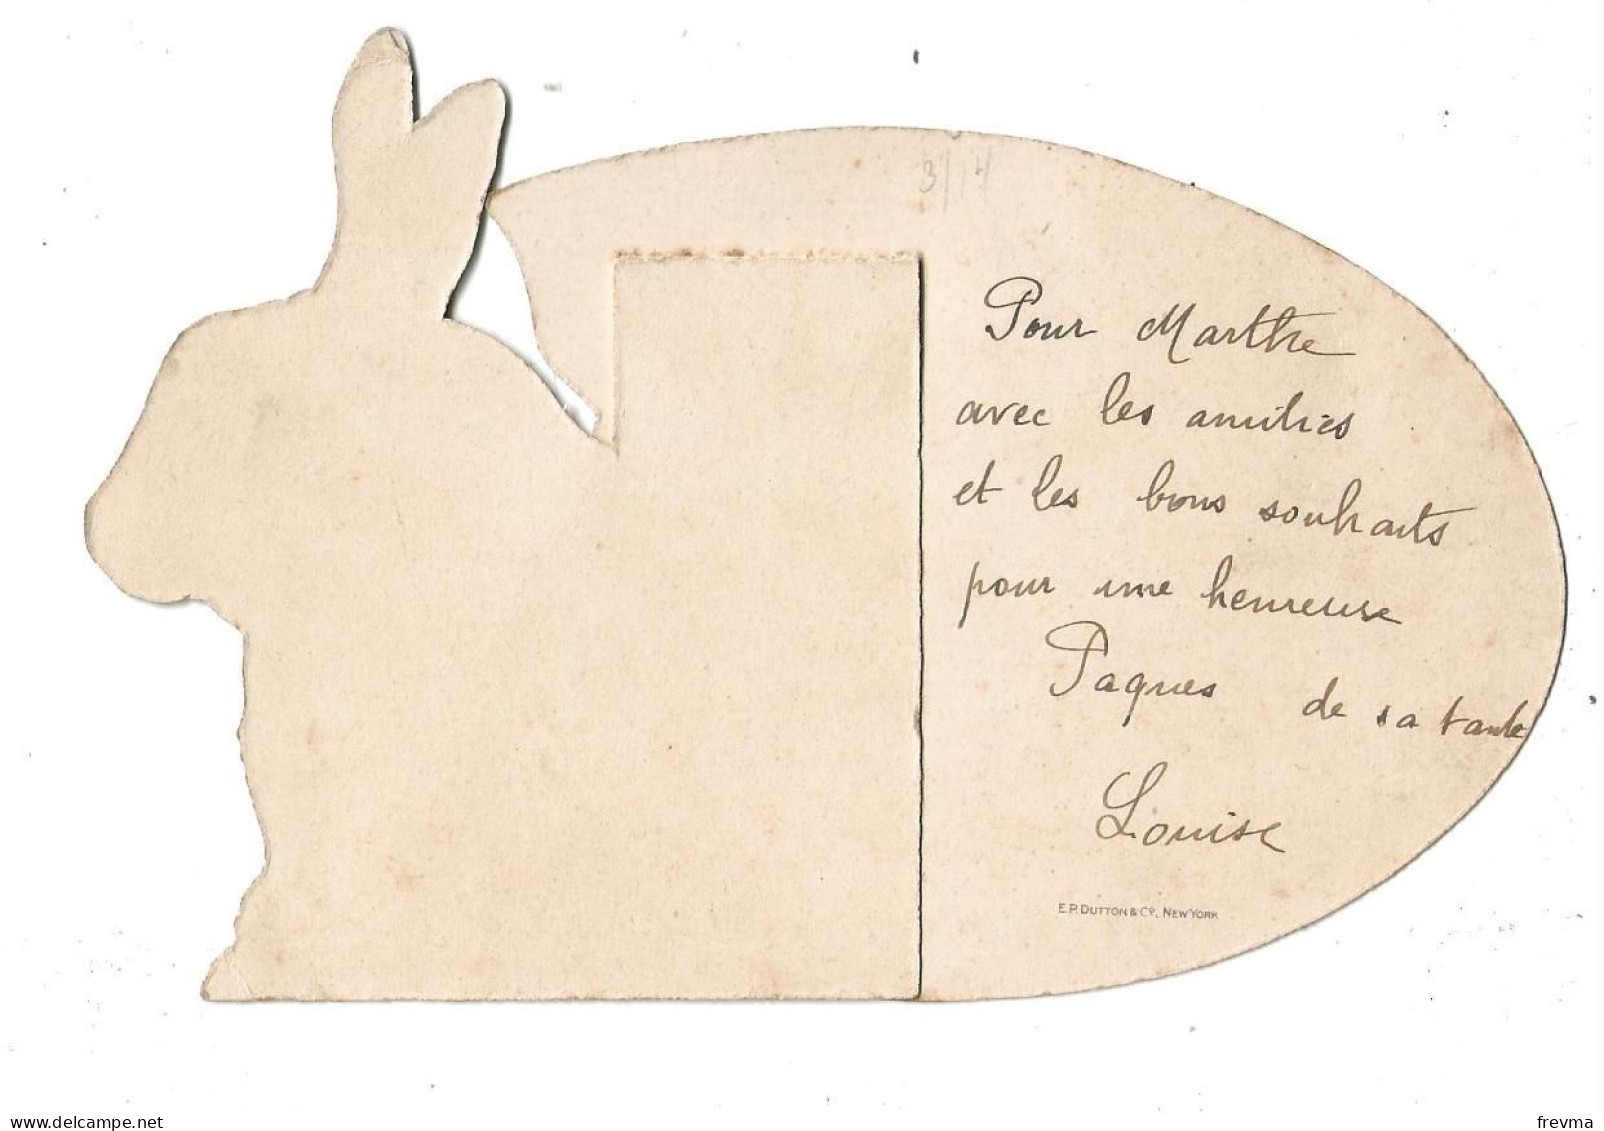 3/14
Pour Marthe
avec les amitiés
et les bons souhaits
pour une heureuse
Paques de sa tante
Louise
E.P. DUTTON & Co, NEW YORK
delcampe.net
frevma